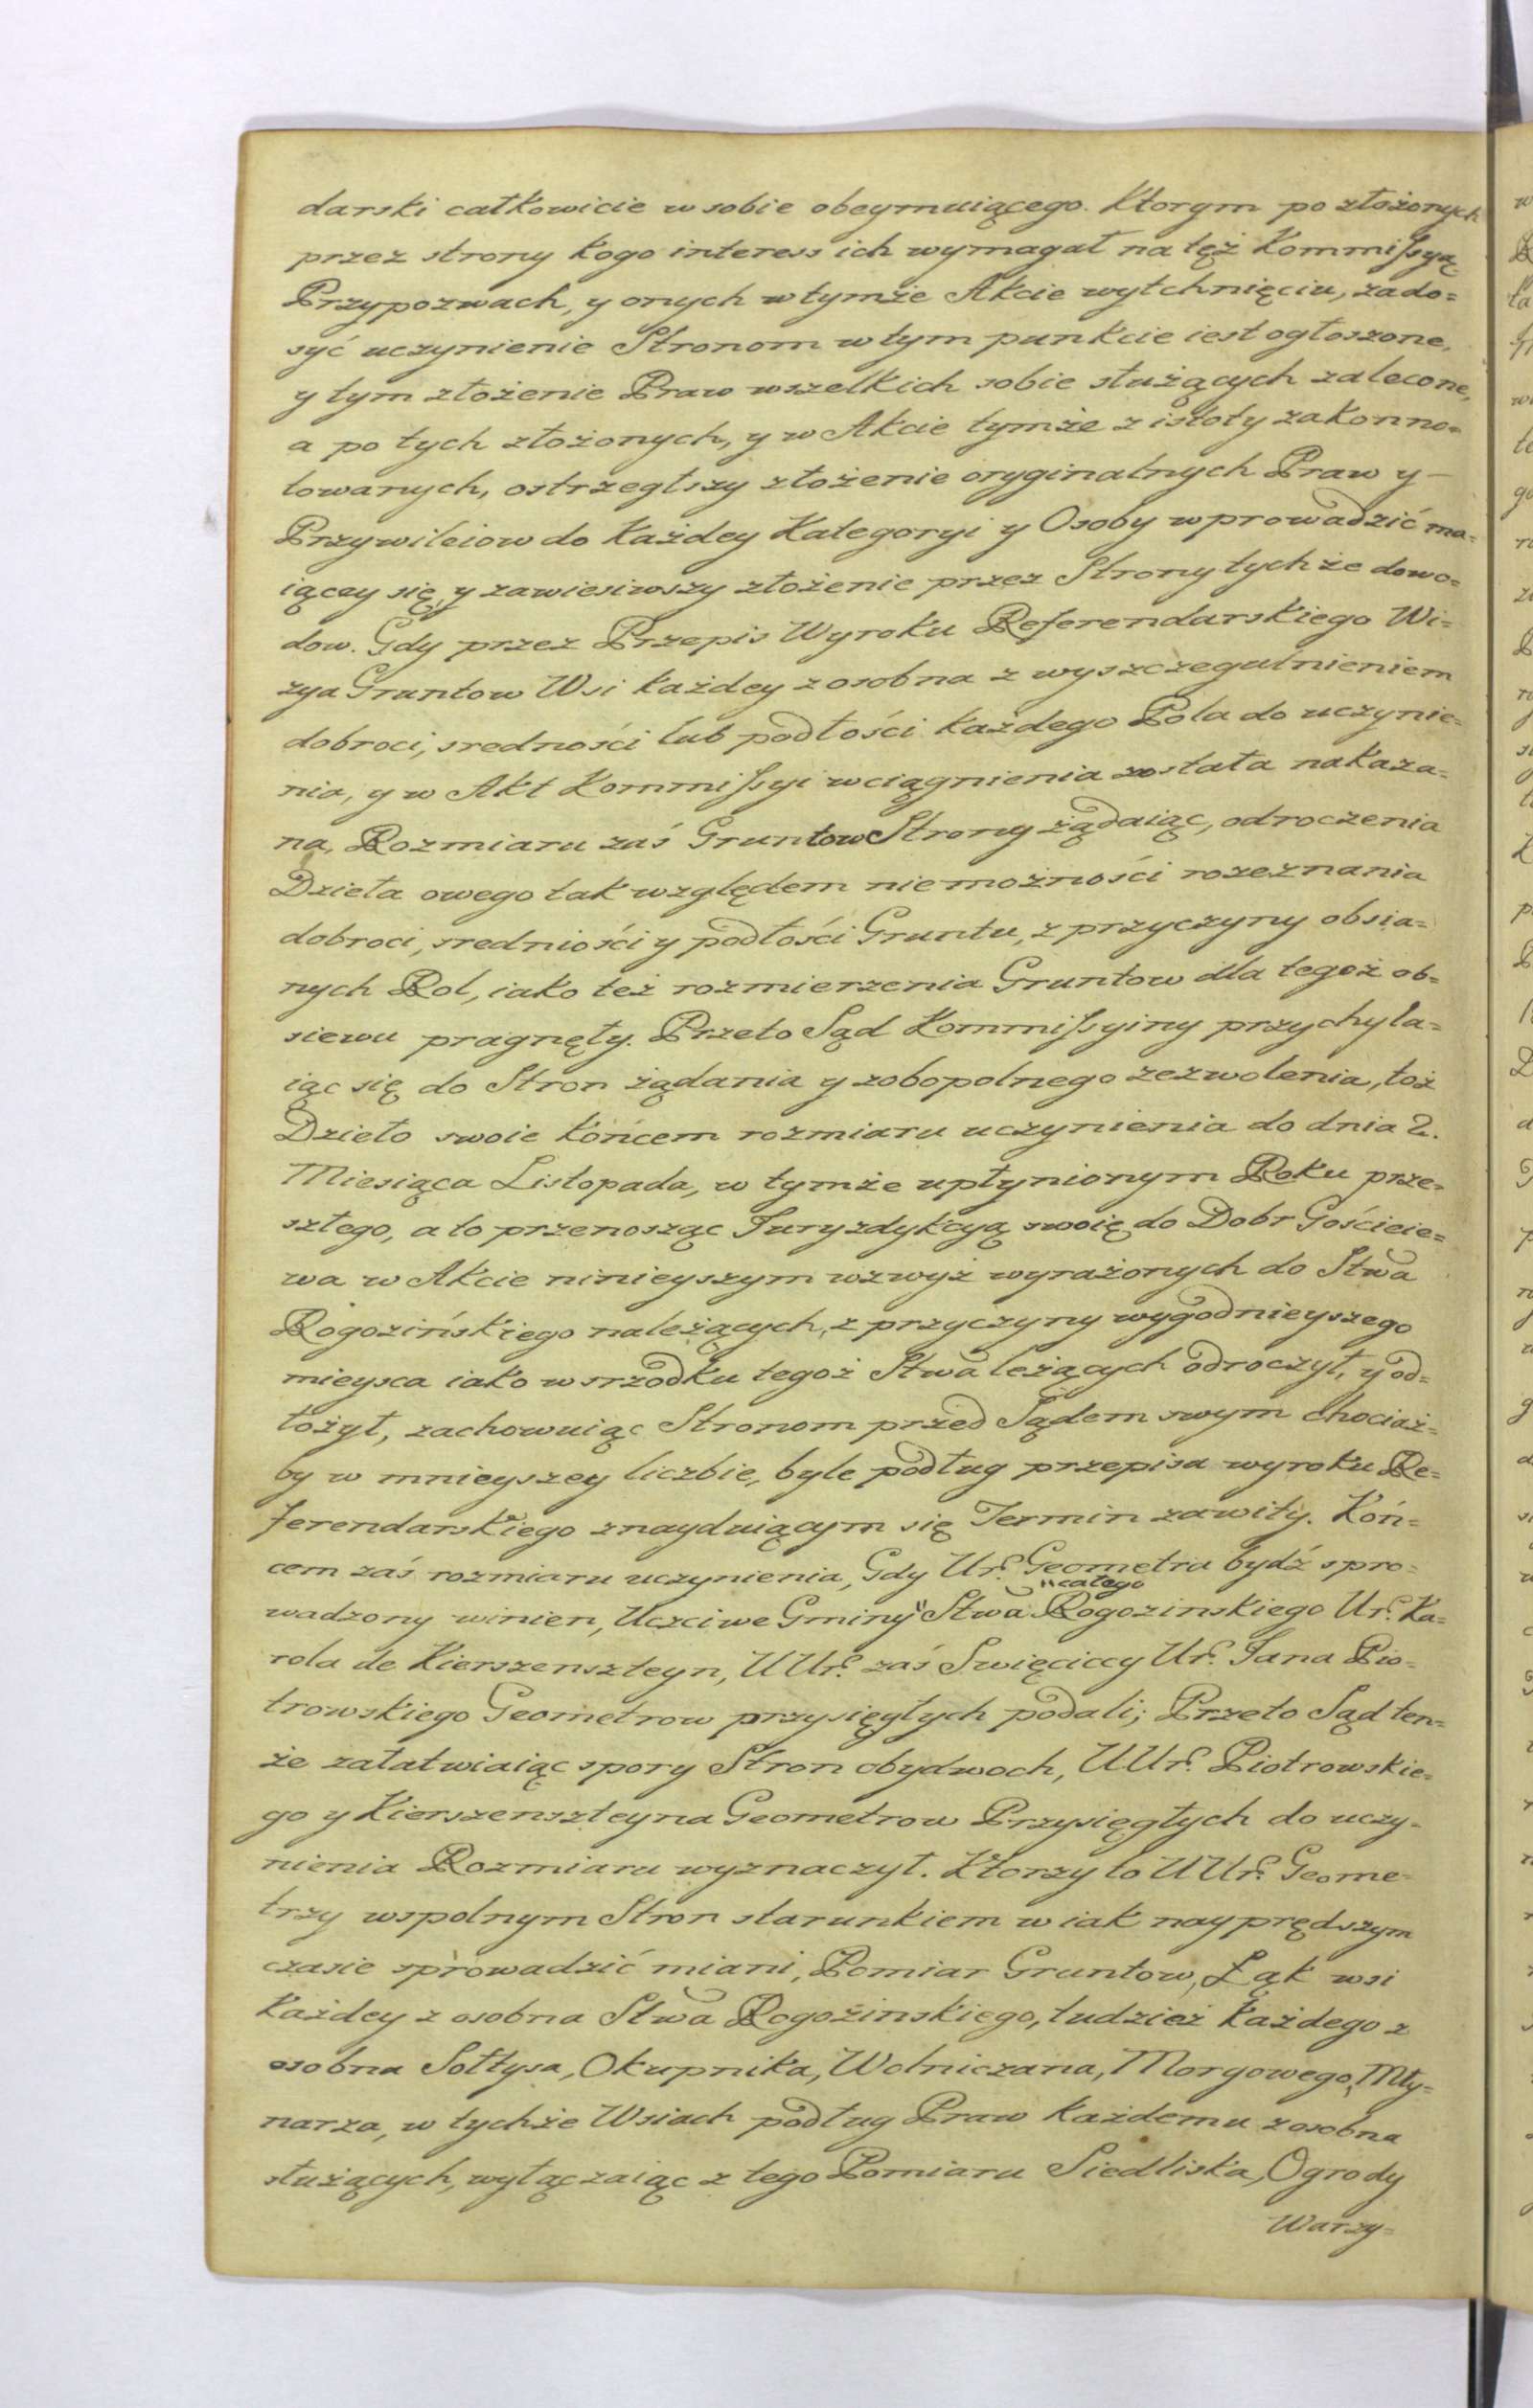 darski całkowicie w sobie obeymuiącego. Ktorym po złożonych
przez strony kogo interess ich wymagał na tęż Kommissyą
Przypozwach, y onych w tymże Akcie wytchnięciu, zado=
syć uczynienie Stronom w tym punkcie iest ogłoszone,
y tym złożenie Praw wszelkich sobie służących zalecone,
a po tych złożonych, y w Akcie tymże z istoty zakonno=
towanych, ostrzegłszy złożenie oryginalnych Praw y
Przywileiow do każdey Kategoryi y Osoby wprowadzić ma=
iącey się, y zawiesiwszy złożenie przez Strony tychże dowo=
dow. Gdy przez Przepis Wyroku Referendarskiego Wi=
zya Gruntow Wsi każdey z osobna z wyszczegulnieniem
dobroci, sredności lub podłości każdego Pola do uczynie=
nia, y w Akt Kommissyi wciągnienia została nakaza=
na, Rozmiaru zaś Gruntow Strony żądaiąc, odroczenia
Dzieła owego tak względem niemożności rozeznania
dobroci, sredniości y podłości Gruntu, z przyczyny obsia=
nych Rol, iako też rozmierzenia Gruntow dla tegoż ob=
siewu pragnęły. Przeto Sąd Kommissyiny przychyla=
iąc się do Stron żądania y zobopolnego zezwolenia, toż
Dzieło swoie końcem rozmiaru uczynienia do dnia 2.
Miesiąca Listopada, w tymże upłynionym Roku prze=
szłego, a to przenosząc Juryzdykcyą swoię do Dobr Gościeie=
wa w Akcie ninieyszym wzwyż wyrażonych do Stwa
Rogozińskiego należących, z przyczyny wygodnieyszego
mieysca iako w srzodku tegoż Stwa leżących odroczył, y od=
łożył, zachowuiąc Stronom przed Sądem swym chociaż=
by w mnieyszey liczbie, byle podług przepisa wyroku Re=
ferendarskiego znayduiącym się Termin zawity. Koń=
cem zaś rozmiaru uczynienia, Gdy Ur. Geometra bydź spro=
wadzony winien, Uczciwe Gminy "całego Stwa Rogozinskiego Ur. Ka=
rola de Kierszenszteyn, UUr. zaś Swięciccy Ur. Jana Pio=
trowskiego Geometrow przysięgłych podali; Przeto Sąd ten=
że załatwiaiąc spory Stron obydwoch, UUr. Piotrowskie=
go y Kierszenszteyna Geometrow Przysięgłych do uczy=
nienia Rozmiaru wyznaczył. Ktorzy to UUr. Geome=
trzy wspolnym Stron starunkiem w iak nayprędszym
czasie sprowadzić miani, Pomiar Gruntow, Łąk wsi
każdey z osobna Stwa Rogozinskiego, tudzież każdego z
osobna Sołtysa, Okupnika, Wolniczana, Morgowego, Mły=
narza, w tychże Wsiach podług Praw każdemu z osobna
służących, wyłączaiąc z tego Pomiaru Siedliska, Ogrody
Warzy=